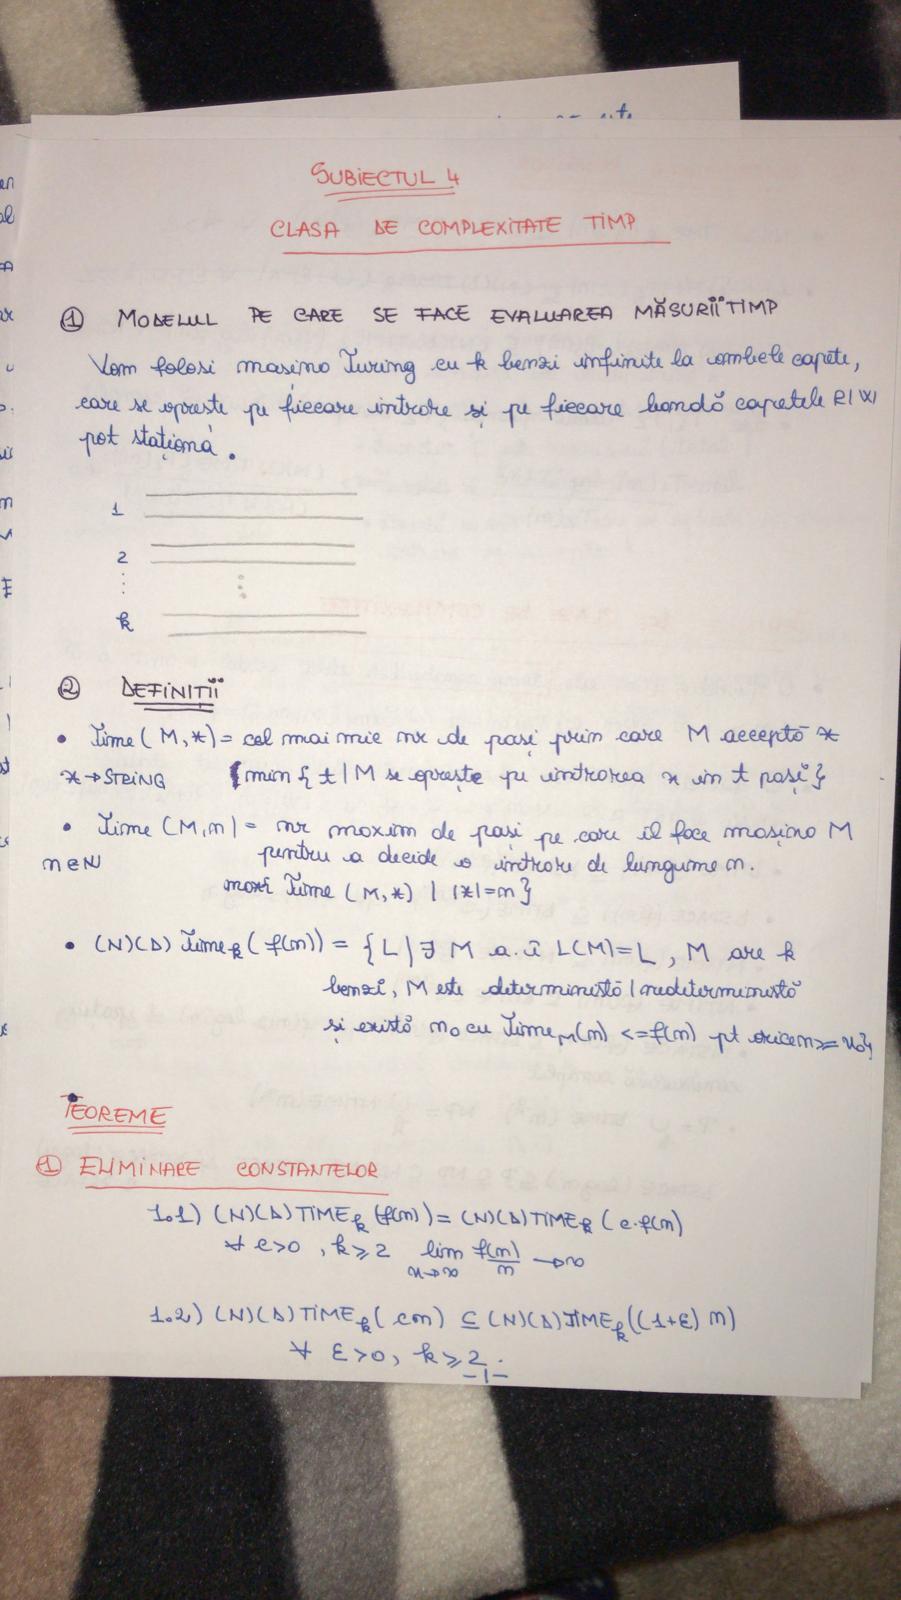 SUBIECTUL 4
CLASA DE COMPLEXITATE TIMP
① MODELUL PE CARE SE FACE EVALUAREA MĂSURII TIMP
Vom folosi mașina Turing cu k benzi infinite la ambele capete,
care se oprește pe fiecare intrare și pe fiecare bandă capetele R/W
pot staționa.
1
2
⋮ ⋮
k
② DEFINIȚII
• Time (M, x) = cel mai mic nr de pași prin care M acceptă x
x → STRING {min { t | M se oprește pe intrarea x în t pași }
• Time (M, n) = nr maxim de pași pe care îl face mașina M
n ∈ N pentru a decide o intrare de lungime n.
max{ Time (M, x) | |x| = n }
• (N)(D) Time_k (f(n)) = { L | ∃ M a.î L(M) = L, M are k
benzi, M este deterministă / nedeterministă
și există n₀ cu Time_M(n) <= f(n) pt orice n >= n₀}
TEOREME
① ELIMINARE CONSTANTELOR
1.1) (N)(D) TIME_k (f(n)) = (N)(D) TIME_k (c·f(n)
∀ c>0 , k ≥ 2 lim f(n)/n → ∞
n→∞
1.2) (N)(D) TIME_k (cn) ⊆ (N)(D) TIME_k((1+ε) n)
∀ ε>0, k ≥ 2.
-1-